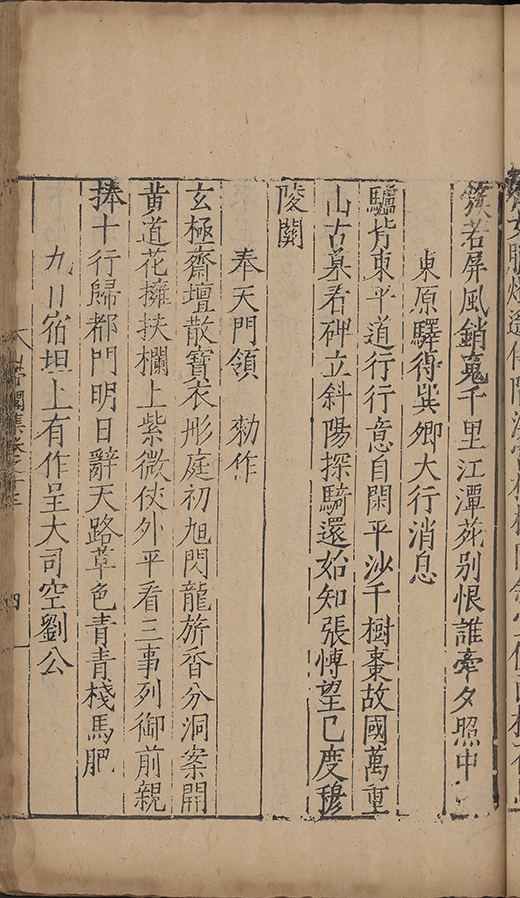 簇若屏風銷䰟千里江潭苑別恨誰牽夕照中
東原驛得巽卿大行消息
驢背東平道行行意自閑平沙千樹棗故國萬重
山古墓看碑立斜陽探騎還始知張愽望已度穆
陵關
奉天門領　勑作
玄極齋壇散寶衣彤庭初旭閃龍旂香分洞案開
黄道花擁扶欄上紫微俠外平看三事列御前親
捧十行歸都門明日辭天路草色青青棧馬肥
九日宿坦上有作呈大司空劉公
四